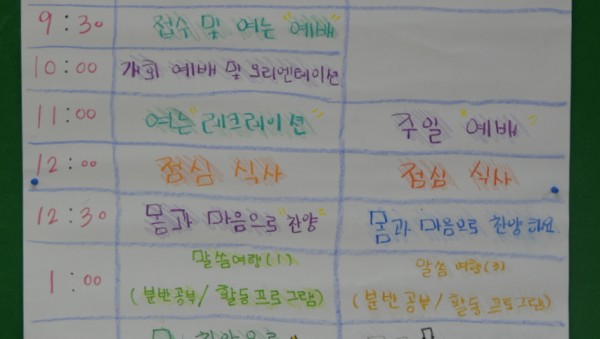 9:30 접수 및 여는 "예배"
10:00 개회 예배 및 오리엔테이션
11:00 여는 "레크레이션" 주일 "예배"
12:00 점심 식사 점심 식사
12:30 몸과 마음으로 "찬양" 몸과 마음으로 찬양해요
1:00 말씀여행(1) 말씀여행(3)
(분반공부/활동프로그램) (분반공부/활동프로그램)